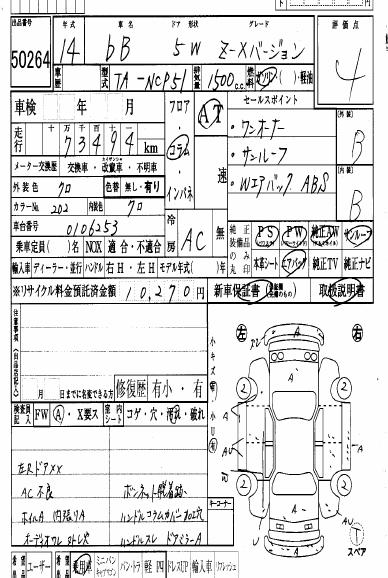 出品番号 年式 車名 ドア 形状 グレード 評価点
50264 14 bB 5 W Z-Xバージョン 4
車歴 型式 TA-NCP51 排気量 1500 c.c. 燃料 ガソリン( )・軽油
車検 年 月 フロア AT セールスポイント 外装
走行 十万 万 千 百 十 一
73494 km ・コラム・ ・ワンオーナー B
メーター交換歴 交換車・改竄車・不明車 ・サンルーフ
外装色 クロ 色替 無し・有り インパネ 速 ・Wエアバック ABS 内装
カラーNo. 202 内装色 クロ B
車台番号 0106253 冷房 AC 無 純正装備品のみ丸印 PS PW 純正AW サンルーフ
乗車定員( )名 NOX 適合・不適合 本革シート エアバッグ 純正TV 純正ナビ
輸入車 ディーラー・並行 ハンドル 右H・左H モデル年式( )年
※リサイクル料金預託済金額 10,270円 新車保証書 取扱説明書
注意事項(出品店記入) 左 右
月 日までに名変できる方 修復歴 有小・有 小キズ
検査員記入 FW A・X要ス 室内シート コゲ・穴・汚れ・破れ
左Rドア XX
AC不良 ボンネット脱着跡
ホイルA 内張りA ハンドルコラムカバー加工穴
ハンドルスレ ドアミラーA
キーコーナー スペア
ユーザー 乗用車 ミニバン バントラ 軽四 ドレスUP 輸入車 リフレッシュ